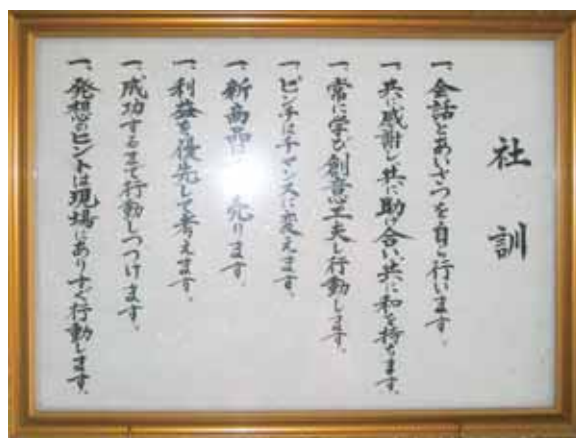 社訓
一、会話とあいさつを自ら行います。
一、共に感謝し共に助け合い、共に和を持ちます。
一、常に学び創意工夫し行動します。
一、ピンチはチャンスに変えます。
一、新商品は 売ります。
一、利益を優先して考えます。
一、成功するまで行動しつづけます。
一、発想のヒントは現場にありすぐ行動します。